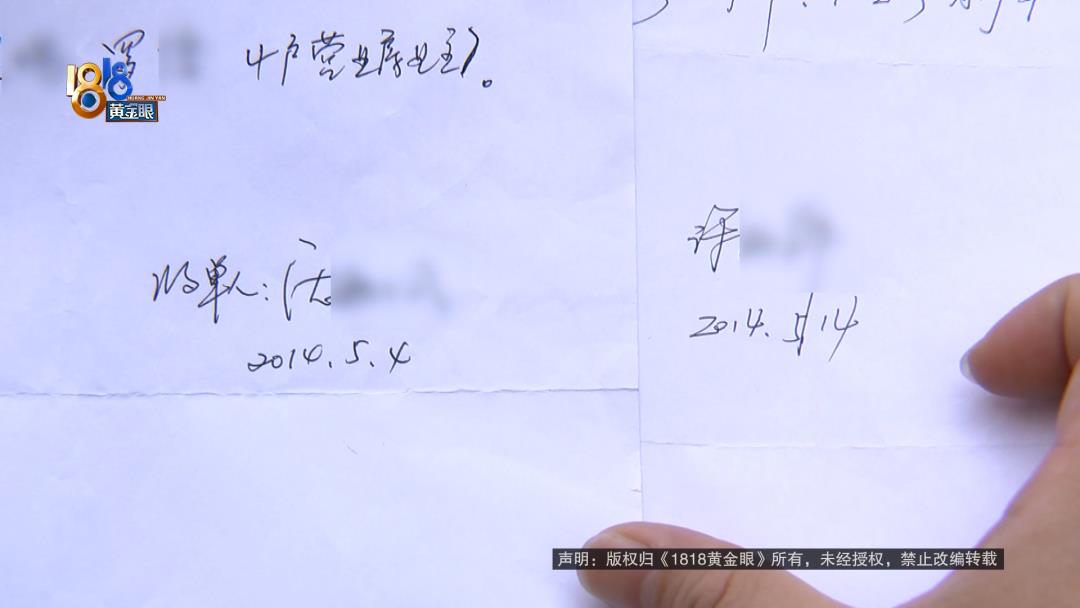 罗 4户营业房业主)。
1818
HUANG JIN YAN
黄金眼
收单人:
2014.5.4
2014.5/14
声明:版权归《1818黄金眼》所有,未经授权,禁止改编转载